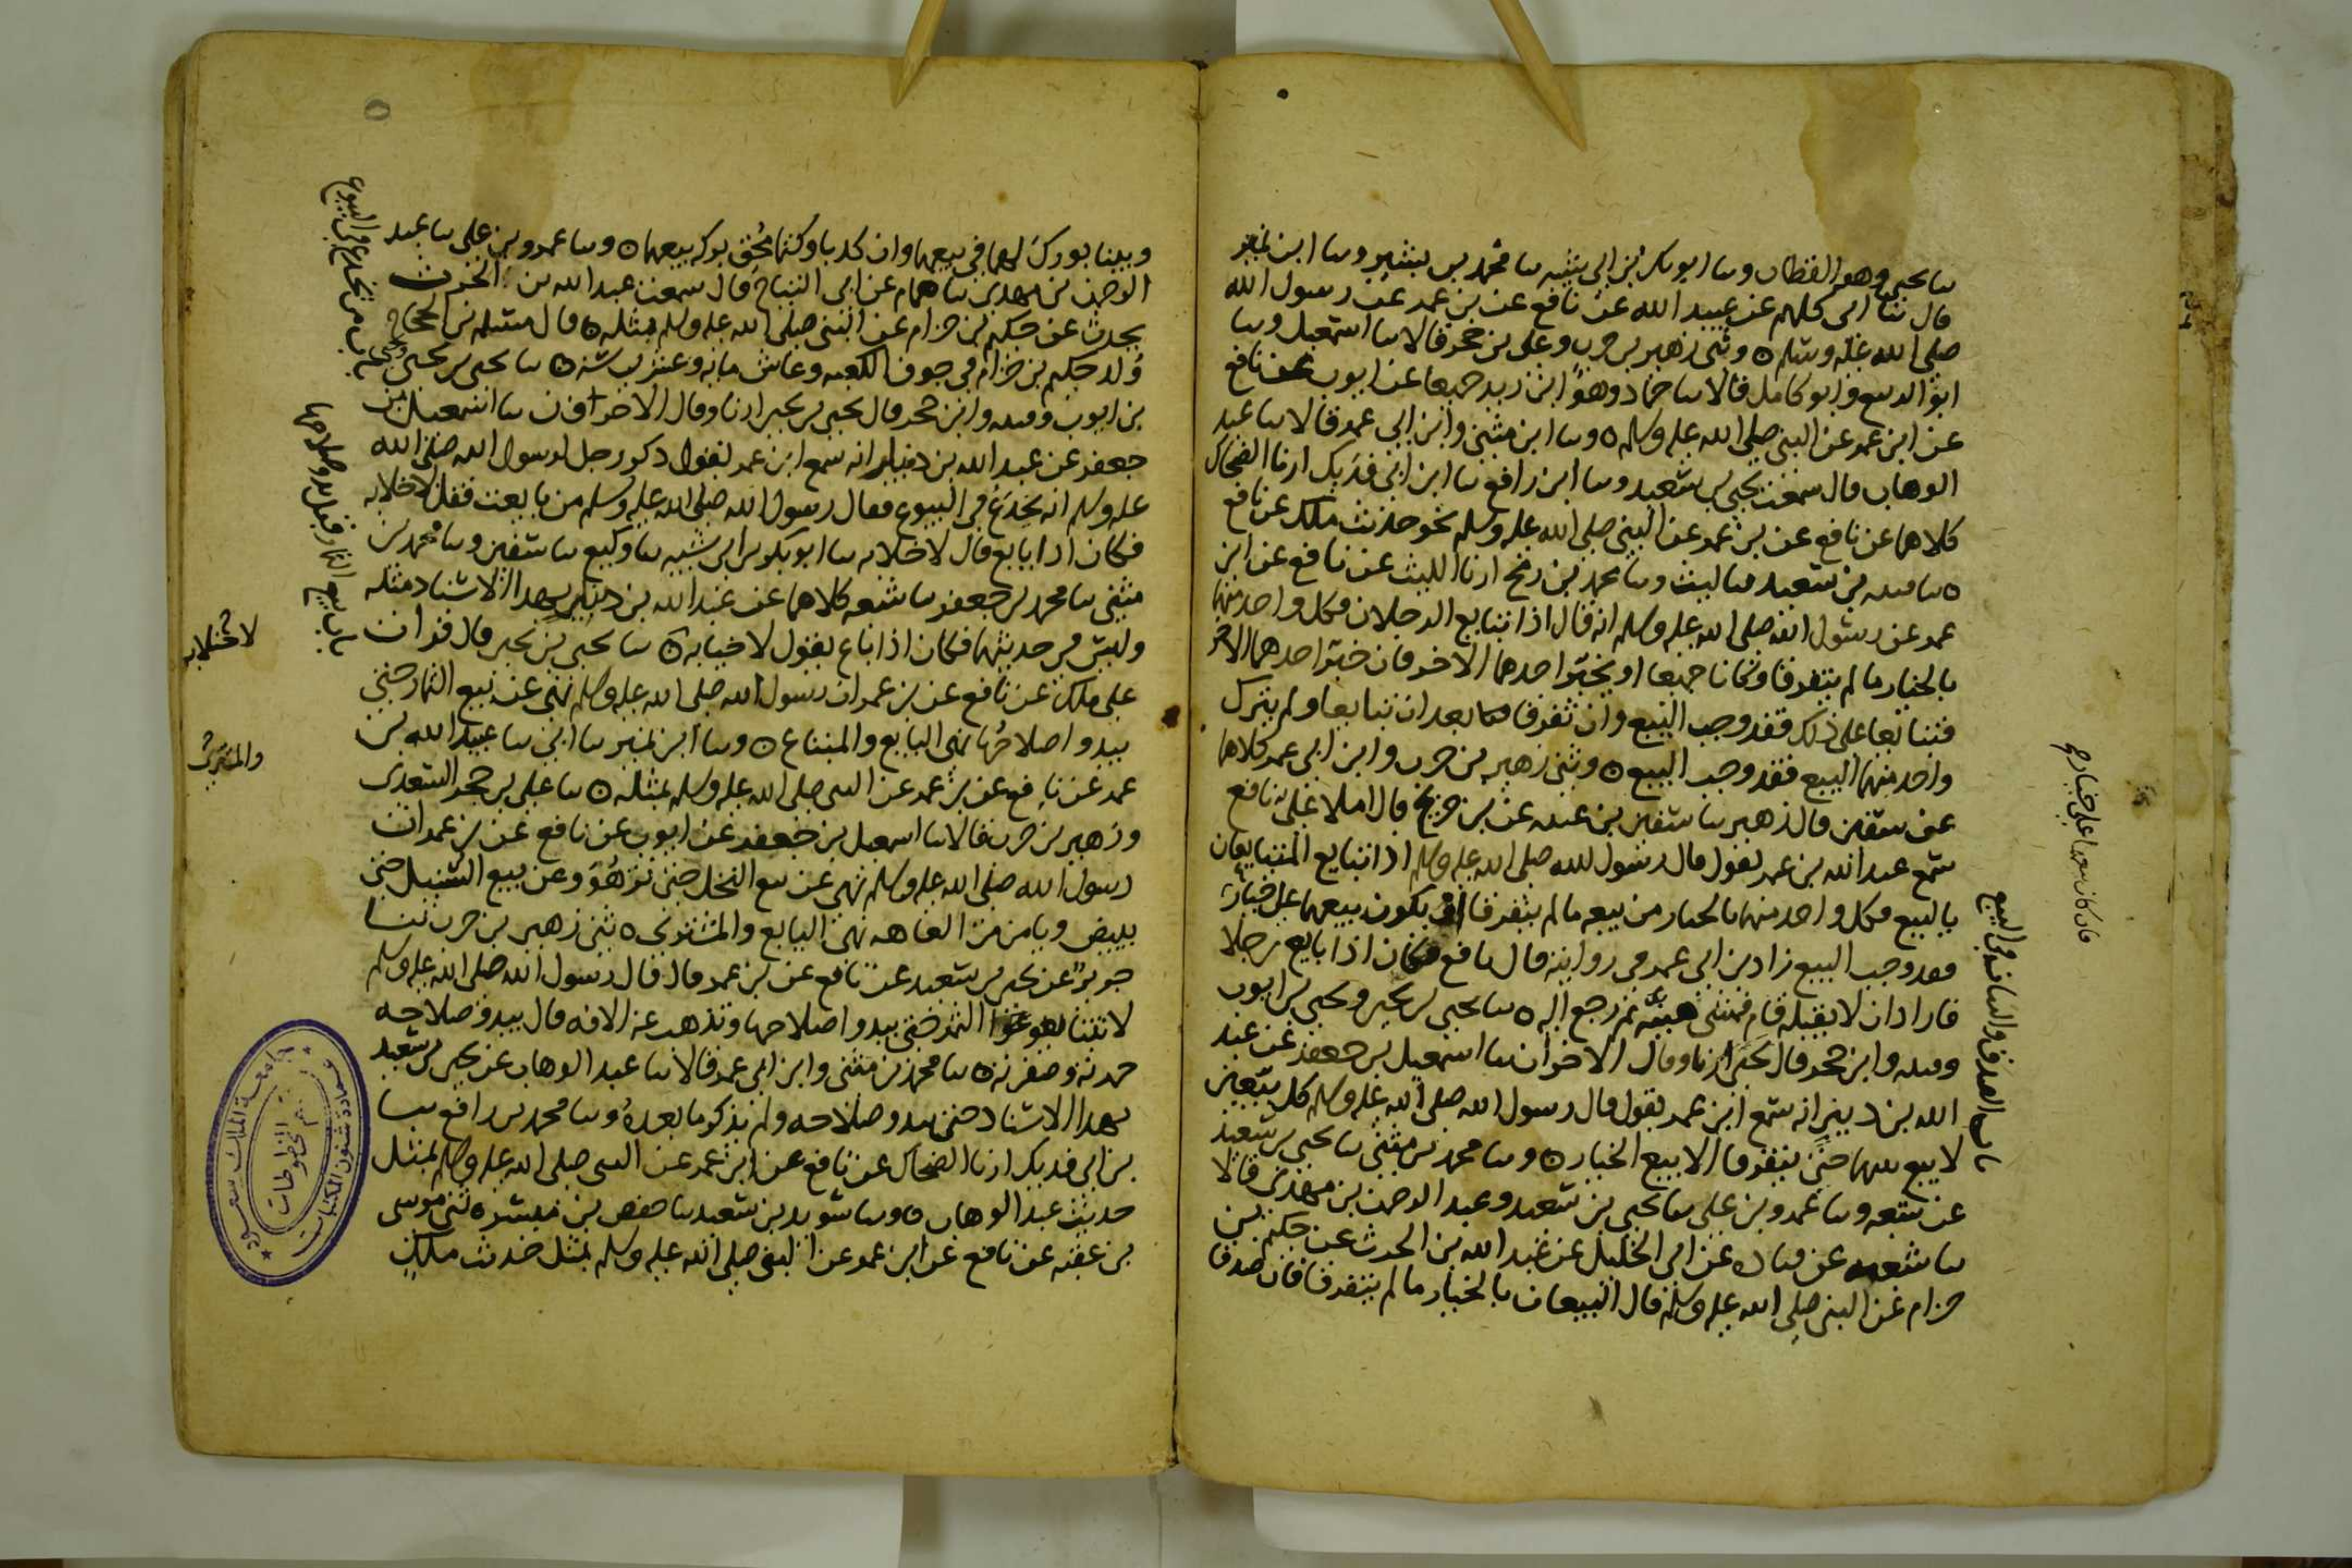 ثنا يحيى وهو القطان وثنا ابو بكر بن ابي شيبه ثنا محمد بن بشير وثنا ابن نمير
قال ثنا ابي كلهم عن عبيد الله عن نافع عن بن عمر عن رسول الله
صلى الله عليه وسلم ٥ وثنى زهير بن حرب وعلي بن حجر قالا ثنا اسمعيل وثنا
ابو الربيع وابو كامل قالا ثنا حماد وهو ابن زيد جميعا عن ايوب عن نافع
عن ابن عمر عن النبي صلى الله عليه وسلم ٥ وثنا ابن مثنى وابن ابي عمر قالا ثنا عبد
الوهاب قال سمعت يحيى بن سعيد وثنا ابن رافع ثنا ابن ابي فديك ارنا الضحاك
كلاهما عن نافع عن بن عمر عن النبي صلى الله عليه وسلم نحو حديث ملك عن نافع
٥ ثنا قتيبه بن سعيد ثنا ليث وثنا محمد بن رمح ارنا الليث عن نافع عن ابن
عمر عن رسول الله صلى الله عليه وسلم انه قال اذا تبايع الرجلان فكل واحد منهما
بالخيار ما لم يتفرقا وكانا جميعا او يخير احدهما الاخر فان خير احدهما الاخر
فتبايعا على ذلك فقد وجب البيع وان تفرقا بعد ان تبايعا ولم يترك
واحد منهما البيع فقد وجب البيع ٥ وثنى زهير بن حرب وابن ابي عمر كلاهما
عن سفين قال زهير ثنا سفين بن عيينه عن بن جريج قال املا علي نافع
سمع عبد الله بن عمر يقول قال رسول الله صلى الله عليه وسلم اذا تبايع المتبايعان
بالبيع فكل واحد منهما بالخيار من بيعه ما لم يتفرقا او يكون بيعهما على خيار
فقد وجب البيع زاد بن ابي عمر في روايته قال نافع فكان اذا بايع رجلا
فاراد ان لا يقيله قام فمشى هنية ثم رجع اليه ٥ ثنا يحيى بن يحيى ويحيى بن ايوب
وقتيبه وابن حجر قال يحيى ارنا وقال الاخران ثنا اسمعيل بن جعفر عن عبد
الله بن دينار انه سمع ابن عمر يقول قال رسول الله صلى الله عليه وسلم كل بيعين
لا بيع بينهما حتى يتفرقا الا بيع الخيار ٥ وثنا محمد بن مثنى ثنا يحيى بن سعيد
عن شعبه وثنا عمرو بن علي ثنا يحيى بن سعيد وعبد الرحمن بن مهدي قالا
ثنا شعبه عن قتاده عن ابي الخليل عن عبد الله بن الحرث عن حكيم بن
حزام عن النبي صلى الله عليه وسلم قال البيعان بالخيار ما لم يتفرقا فان صدقا
فان كان بيعهما على خيار
باب الصدق والبيان في البيع
وبينا بورك لهما في بيعهما وان كذبا وكتما محق بركه بيعهما ٥ وثنا عمرو بن علي ثنا عبد
الرحمن بن مهدي ثنا همام عن ابي التياح قال سمعت عبد الله بن الحرث
يحدث عن حكيم بن حزام عن النبي صلى الله عليه وسلم بمثله ٥ قال مسلم بن الحجاج
ولد حكيم بن حزام في جوف الكعبه وعاش مايه وعشرين سنه ٥ ثنا يحيى بن يحيى ويحيى
بن ايوب وقتيبه وابن حجر قال يحيى بن يحيى ارنا وقال الاخران ثنا اسمعيل بن
جعفر عن عبد الله بن دينار انه سمع ابن عمر يقول ذكر رجل لرسول الله صلى الله
عليه وسلم انه يخدع في البيوع فقال رسول الله صلى الله عليه وسلم من بايعت فقل لا خلابه
فكان اذا بايع قال لا خلابه ثنا ابو بكر بن ابي شيبه ثنا وكيع ثنا سفين وثنا محمد بن
مثنى ثنا محمد بن جعفر ثنا شعبه كلاهما عن عبد الله بن دينار بهذا الاسناد مثله
وليس في حديثهما فكان اذا باع يقول لا خيابه ٥ ثنا يحيى بن يحيى قال قرات
على ملك عن نافع عن بن عمر ان رسول الله صلى الله عليه وسلم نهى عن بيع الثمار حتى
يبدوا صلاحها نهى البايع والمبتاع ٥ وثنا ابن نمير ثنا ابي ثنا عبيد الله بن
عمر عن نافع عن بن عمر عن النبي صلى الله عليه وسلم بمثله ٥ ثنا علي بن حجر السعدي
وزهير بن حرب قالا ثنا اسمعيل بن جعفر عن ايوب عن نافع عن بن عمر ان
رسول الله صلى الله عليه وسلم نهى عن بيع النخل حتى تزهو وعن بيع السنبل حتى
يبيض ويامن من العاهه نهى البايع والمشتري ٥ ثنى زهير بن حرب ثنا
جرير عن يحيى بن سعيد عن نافع عن بن عمر قال قال رسول الله صلى الله عليه وسلم
لا تبتاعوا الثمر حتى يبدوا صلاحها وتذهب عنه الافه قال يبدو صلاحه
حمرته وصفرته ٥ ثنا محمد بن مثنى وابن ابي عمر قالا ثنا عبد الوهاب عن يحيى بن سعيد
بهذا الاسناد حتى يبدو صلاحه ولم يذكر ما بعده وثنا محمد بن رافع ثنا
بن ابي فديك ارنا الضحاك عن نافع عن ابن عمر عن النبي صلى الله عليه وسلم بمثل
حديث عبد الوهاب ٥ وثنا سويد بن سعيد ثنا حفص بن ميسره ثنى موسى
بن عقبه عن نافع عن ابن عمر عن النبي صلى الله عليه وسلم بمثل حديث ملك
باب من يخدع في البيوع
باب بيع الثمار قبل بدو صلاحها
لا خلابه
والمشتري
جامعة الملك سعود
عمادة شئون المكتبات
قسم المخطوطات